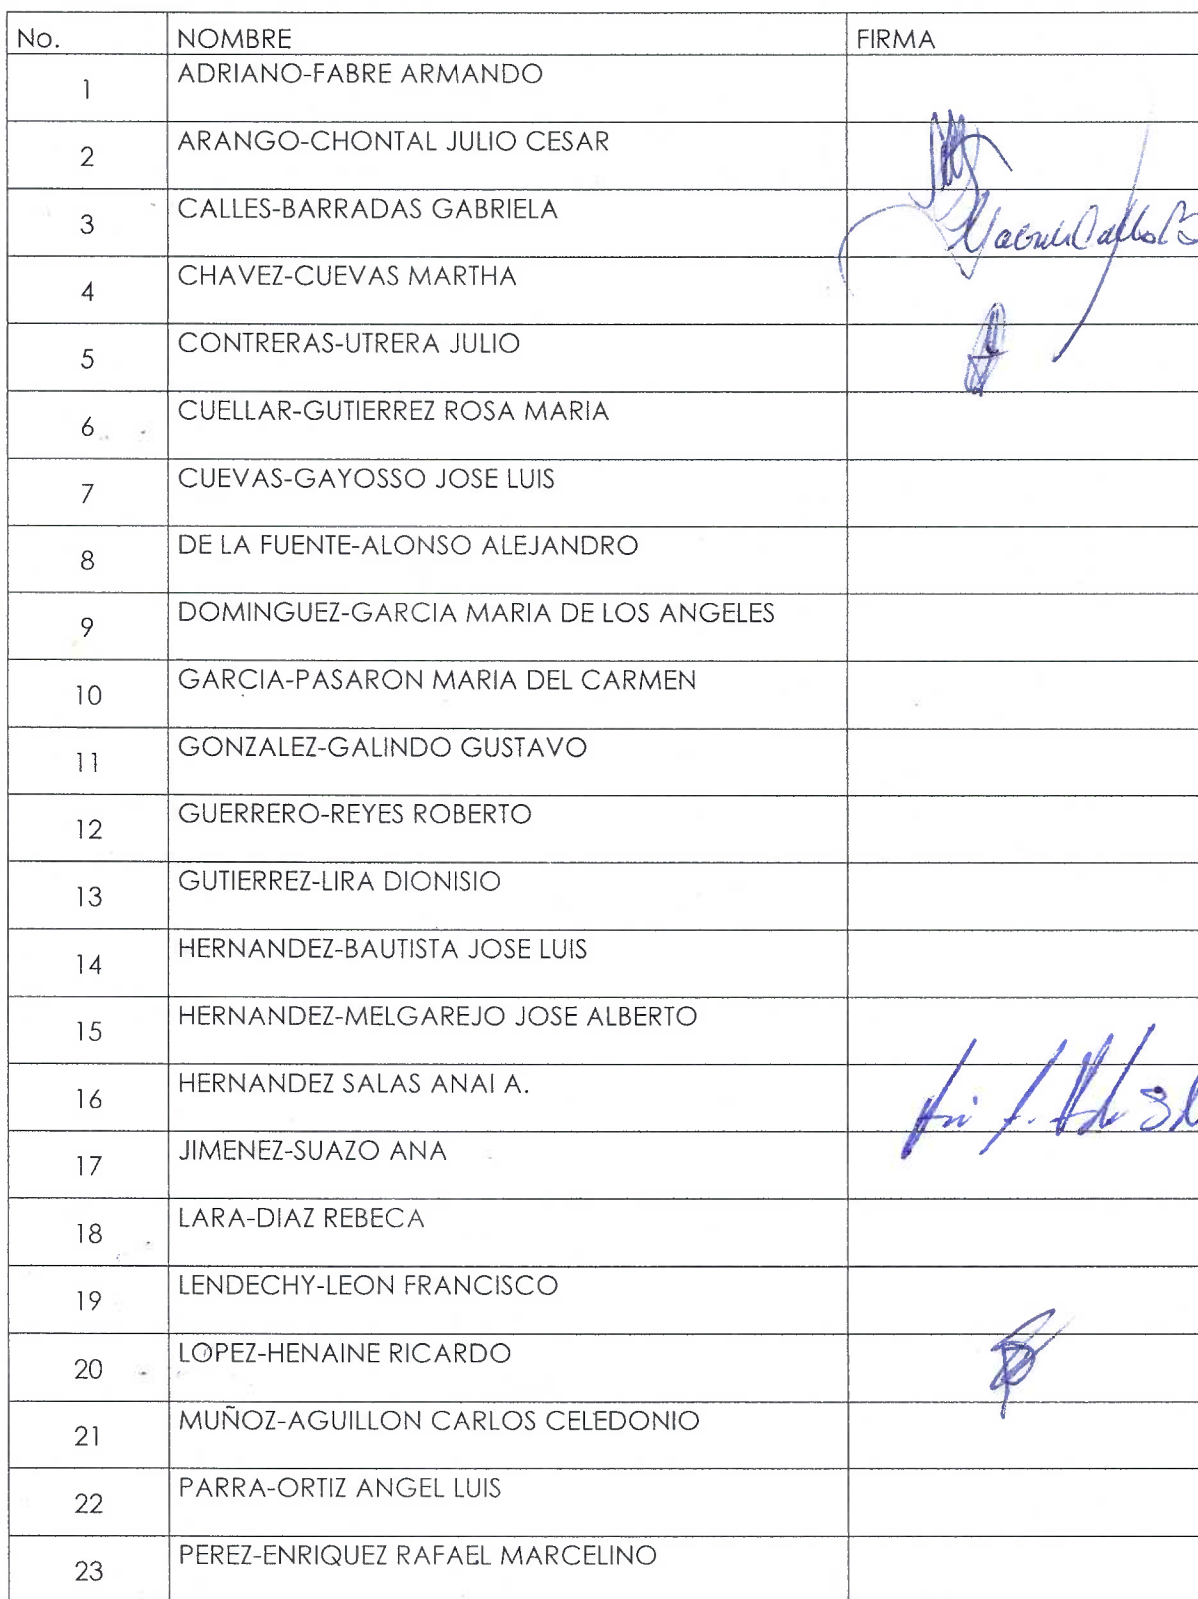 No. NOMBRE FIRMA
1 ADRIANO-FABRE ARMANDO
2 ARANGO-CHONTAL JULIO CESAR
3 CALLES-BARRADAS GABRIELA
4 CHAVEZ-CUEVAS MARTHA
5 CONTRERAS-UTRERA JULIO
6 CUELLAR-GUTIERREZ ROSA MARIA
7 CUEVAS-GAYOSSO JOSE LUIS
8 DE LA FUENTE-ALONSO ALEJANDRO
9 DOMINGUEZ-GARCIA MARIA DE LOS ANGELES
10 GARCIA-PASARON MARIA DEL CARMEN
11 GONZALEZ-GALINDO GUSTAVO
12 GUERRERO-REYES ROBERTO
13 GUTIERREZ-LIRA DIONISIO
14 HERNANDEZ-BAUTISTA JOSE LUIS
15 HERNANDEZ-MELGAREJO JOSE ALBERTO
16 HERNANDEZ SALAS ANAI A.
17 JIMENEZ-SUAZO ANA
18 LARA-DIAZ REBECA
19 LENDECHY-LEON FRANCISCO
20 LOPEZ-HENAINE RICARDO
21 MUÑOZ-AGUILLON CARLOS CELEDONIO
22 PARRA-ORTIZ ANGEL LUIS
23 PEREZ-ENRIQUEZ RAFAEL MARCELINO